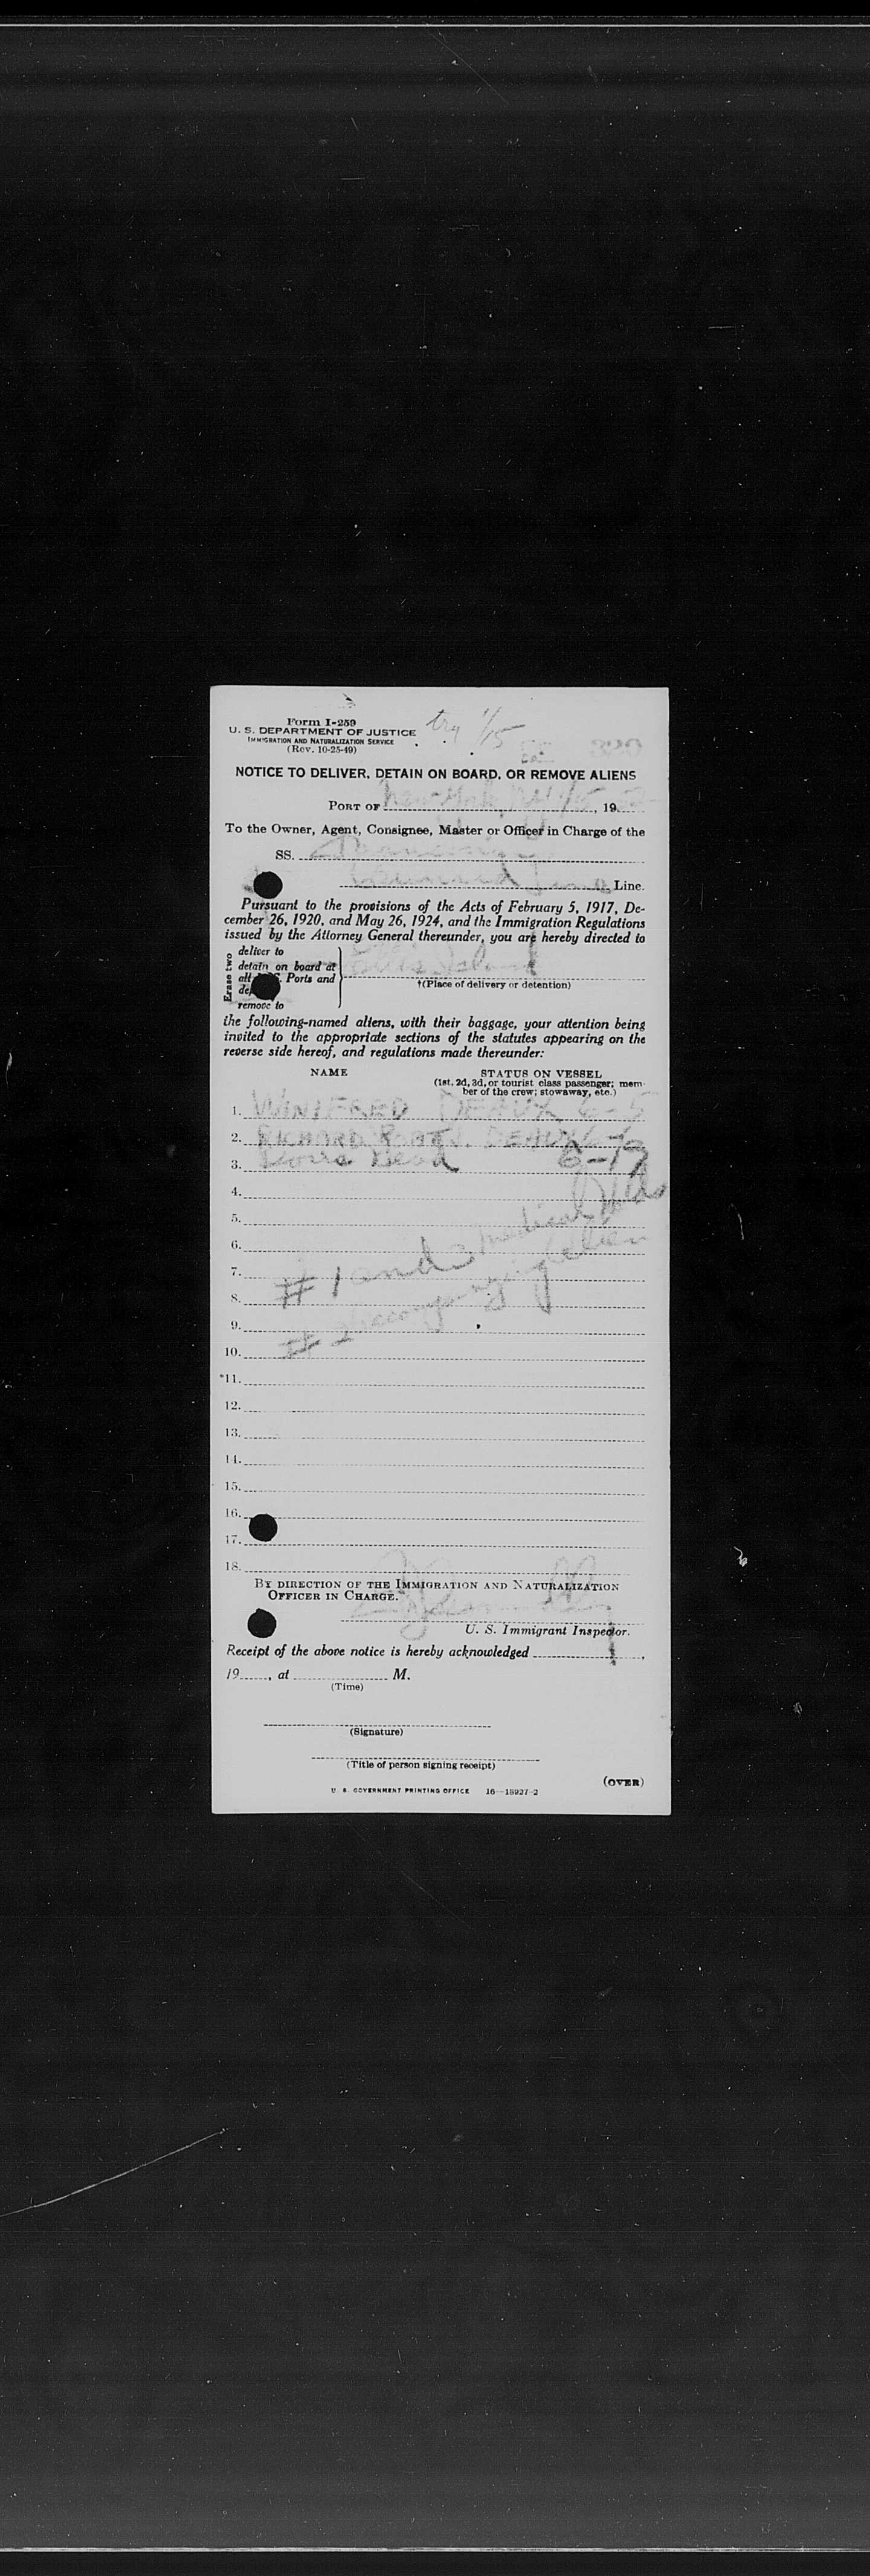 Form I-259
U. S. DEPARTMENT OF JUSTICE
IMMIGRATION AND NATURALIZATION SERVICE
(Rev. 10-25-49)
try 1/15
NOTICE TO DELIVER, DETAIN ON BOARD, OR REMOVE ALIENS
PORT OF New York, 19
To the Owner, Agent, Consignee, Master or Officer in Charge of the
SS.
Line.
Pursuant to the provisions of the Acts of February 5, 1917, De-
cember 26, 1920, and May 26, 1924, and the Immigration Regulations
issued by the Attorney General thereunder, you are hereby directed to
Erase two
deliver to
detain on board at
all Ports and
remove to
Ellis Island
†(Place of delivery or detention)
the following-named aliens, with their baggage, your attention being
invited to the appropriate sections of the statutes appearing on the
reverse side hereof, and regulations made thereunder:
NAME STATUS ON VESSEL
(1st, 2d, 3d, or tourist class passenger; mem-
ber of the crew; stowaway, etc.)
1. WINIFRED
2. RICHARD
3. 6-19
4.
5.
6.
7. #1 and 3 medical
8.
9. #2 accompanying alien
10.
*11.
12.
13.
14.
15.
16.
17.
18.
BY DIRECTION OF THE IMMIGRATION AND NATURALIZATION
OFFICER IN CHARGE.
U. S. Immigrant Inspector.
Receipt of the above notice is hereby acknowledged
19, at M.
(Time)
(Signature)
(Title of person signing receipt)
(OVER)
U. S. GOVERNMENT PRINTING OFFICE 16—18927-2